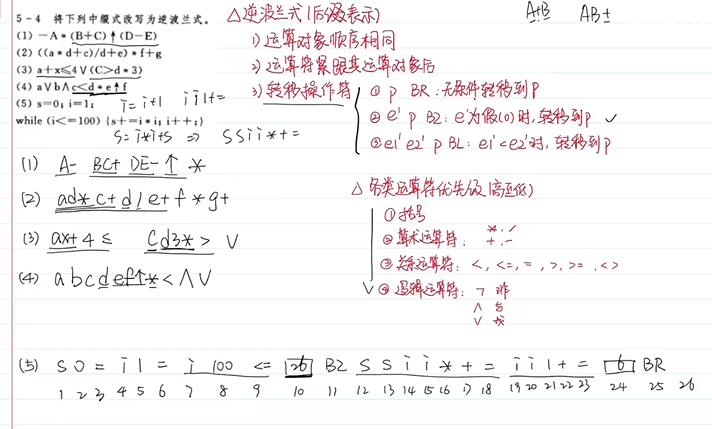 5-4 将下列中缀式改写为逆波兰式。
(1) -A*(B+C)↑(D-E)
(2) ((a*d+c)/d+e)*f+g
(3) a+x≤4∨(C>d*3)
(4) a∨b∧c<d*e↑f
(5) s=0; i=1;
i=i+1 i i 1+=
while (i<=100) {s+=i*i; i++;}
S=i*i+S ⇒ S S i i * + =
△逆波兰式(后缀表示)
A+B AB+
1) 运算对象顺序相同
2) 运算符紧跟其运算对象后
3) 转移操作符
① p BR: 无条件转移到P
② e' p BZ: e'为假(0)时, 转移到P ✓
③ e1' e2' p BL: e1'<e2'时, 转移到P
(1) A- BC+ DE-↑ *
(2) ad*c+d/e+f*g+
(3) ax+4≤ Cd3*> ∨
(4) abcdef↑*<∧∨
△ 各类运算符优先级(高至低)
① 括号
② 算术运算符: *, / +, -
③ 关系运算符: <, <=, =, >, >=, <>
∨ ④ 逻辑运算符: ¬ 非
∧ 与
∨ 或
(5) S 0 = i 1 = i 100 <= 26 BZ S S i i * + = i i 1 + = 6 BR
1 2 3 4 5 6 7 8 9 10 11 12 13 14 15 16 17 18 19 20 21 22 23 24 25 26